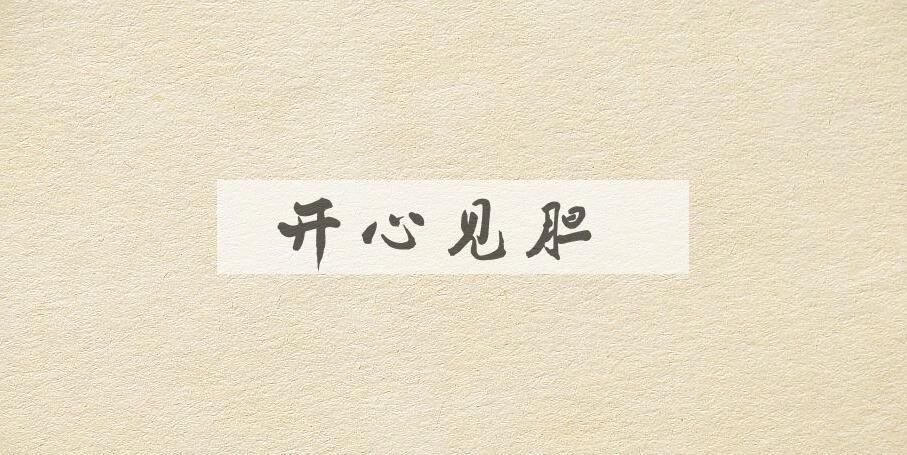 开心见胆